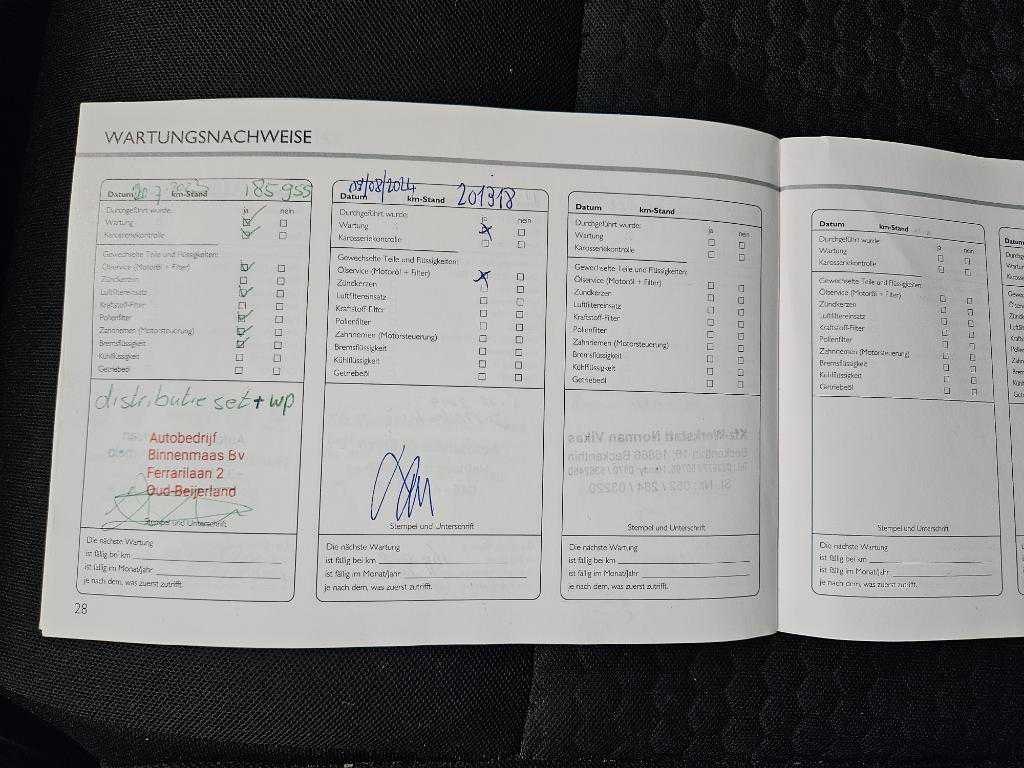 WARTUNGSNACHWEISE
Datum 20 7 2023 km-Stand 185955
Durchgeführt wurde: ja nein
Wartung
Karosseriekontrolle
Gewechselte Teile und Flüssigkeiten:
Ölservice (Motoröl + Filter)
Zündkerzen
Luftfiltereinsatz
Kraftstoff-Filter
Pollenfilter
Zahnriemen (Motorsteuerung)
Bremsflüssigkeit
Kühlflüssigkeit
Getriebeöl
distributie set + wp
Autobedrijf
Binnenmaas Bv
Ferrarilaan 2
Oud-Beijerland
Stempel und Unterschrift
Die nächste Wartung
ist fällig bei km
ist fällig im Monat/Jahr
je nach dem, was zuerst zutrifft.
28
09/08/2024 201318
Datum km-Stand
Durchgeführt wurde: ja nein
Wartung
Karosseriekontrolle
Gewechselte Teile und Flüssigkeiten:
Ölservice (Motoröl + Filter)
Zündkerzen
Luftfiltereinsatz
Kraftstoff-Filter
Pollenfilter
Zahnriemen (Motorsteuerung)
Bremsflüssigkeit
Kühlflüssigkeit
Getriebeöl
Stempel und Unterschrift
Die nächste Wartung
ist fällig bei km
ist fällig im Monat/Jahr
je nach dem, was zuerst zutrifft.
Datum km-Stand
Durchgeführt wurde: ja nein
Wartung
Karosseriekontrolle
Gewechselte Teile und Flüssigkeiten:
Ölservice (Motoröl + Filter)
Zündkerzen
Luftfiltereinsatz
Kraftstoff-Filter
Pollenfilter
Zahnriemen (Motorsteuerung)
Bremsflüssigkeit
Kühlflüssigkeit
Getriebeöl
Stempel und Unterschrift
Die nächste Wartung
ist fällig bei km
ist fällig im Monat/Jahr
je nach dem, was zuerst zutrifft.
Datum km-Stand
Durchgeführt wurde: ja nein
Wartung
Karosseriekontrolle
Gewechselte Teile und Flüssigkeiten:
Ölservice (Motoröl + Filter)
Zündkerzen
Luftfiltereinsatz
Kraftstoff-Filter
Pollenfilter
Zahnriemen (Motorsteuerung)
Bremsflüssigkeit
Kühlflüssigkeit
Getriebeöl
Stempel und Unterschrift
Die nächste Wartung
ist fällig bei km
ist fällig im Monat/Jahr
je nach dem, was zuerst zutrifft.
Datum